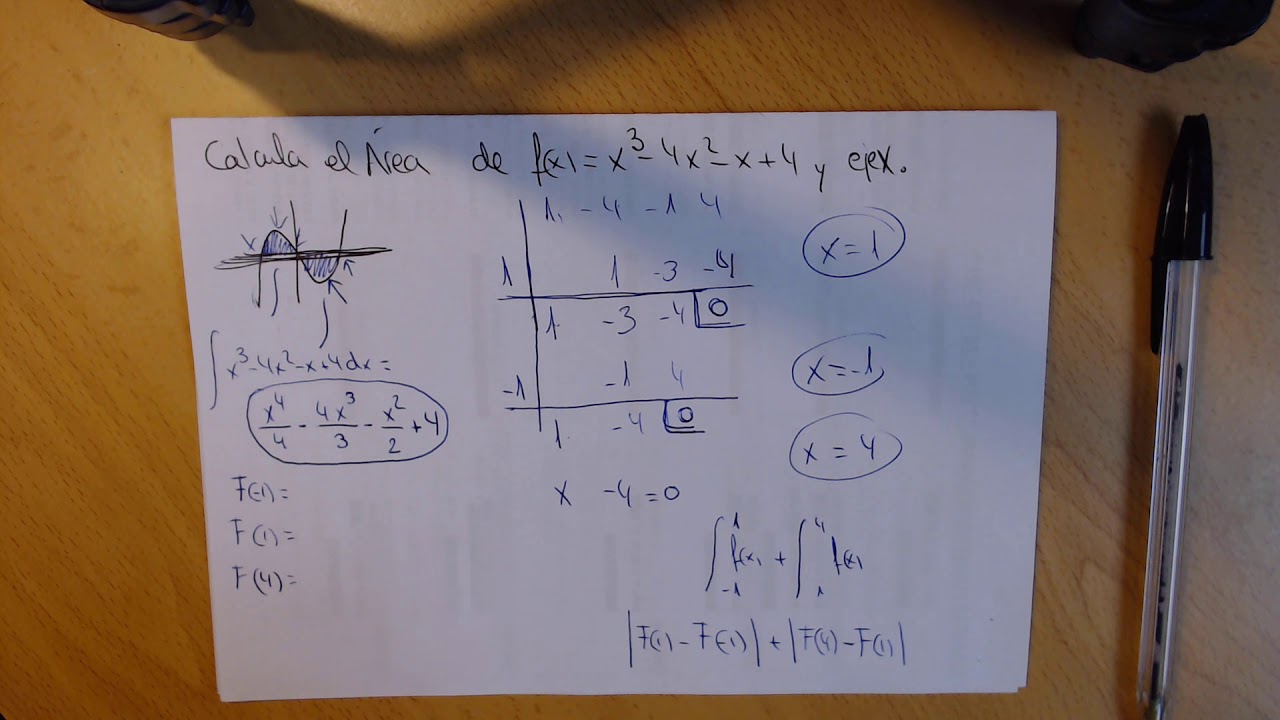 Calcula el Área de f(x)=x³-4x²-x+4 y eje X.
1 -4 -1 4
1 1 -3 -4
1 -3 -4 0
x=1
-1 -1 4
1 -4 0
x=-1
x -4=0
x=4
∫x³-4x²-x+4dx=
x⁴/4 - 4x³/3 - x²/2 +4
F(-1)=
F(1)=
F(4)=
∫₋₁¹ f(x) + ∫₁⁴ f(x)
|F(1)-F(-1)|+|F(4)-F(1)|